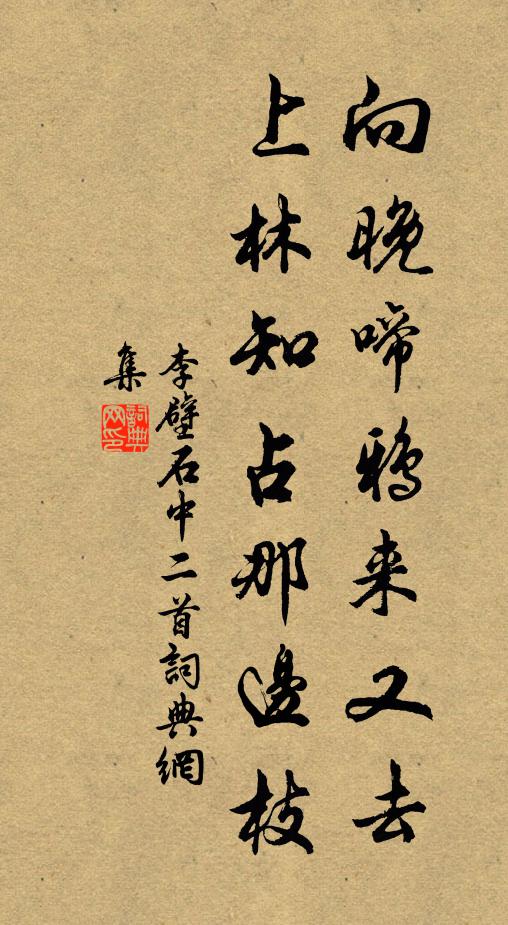 向晚啼鴉来又去
上林知占那邊枝
李壁石中二首詞典網
集
詞典网印